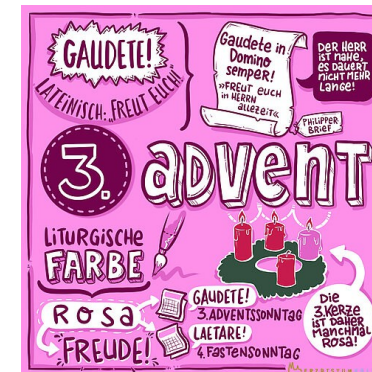 GAUDETE!
LATEINISCH: „FREUT EUCH!"
Gaudete in
Domino
semper!
»FREUT EUCH
IM HERRN
ALLEZEIT«
PHILIPPER
BRIEF
DER HERR
IST NAHE,
ES DAUERT
NICHT MEHR
LANGE!
3. ADVENT
LITURGISCHE
FARBE
ROSA
FREUDE!
GAUDETE!
3. ADVENTSSONNTAG
LAETARE!
4. FASTENSONNTAG
Die
3. KERZE
IST DAHER
MANCHMAL
ROSA!